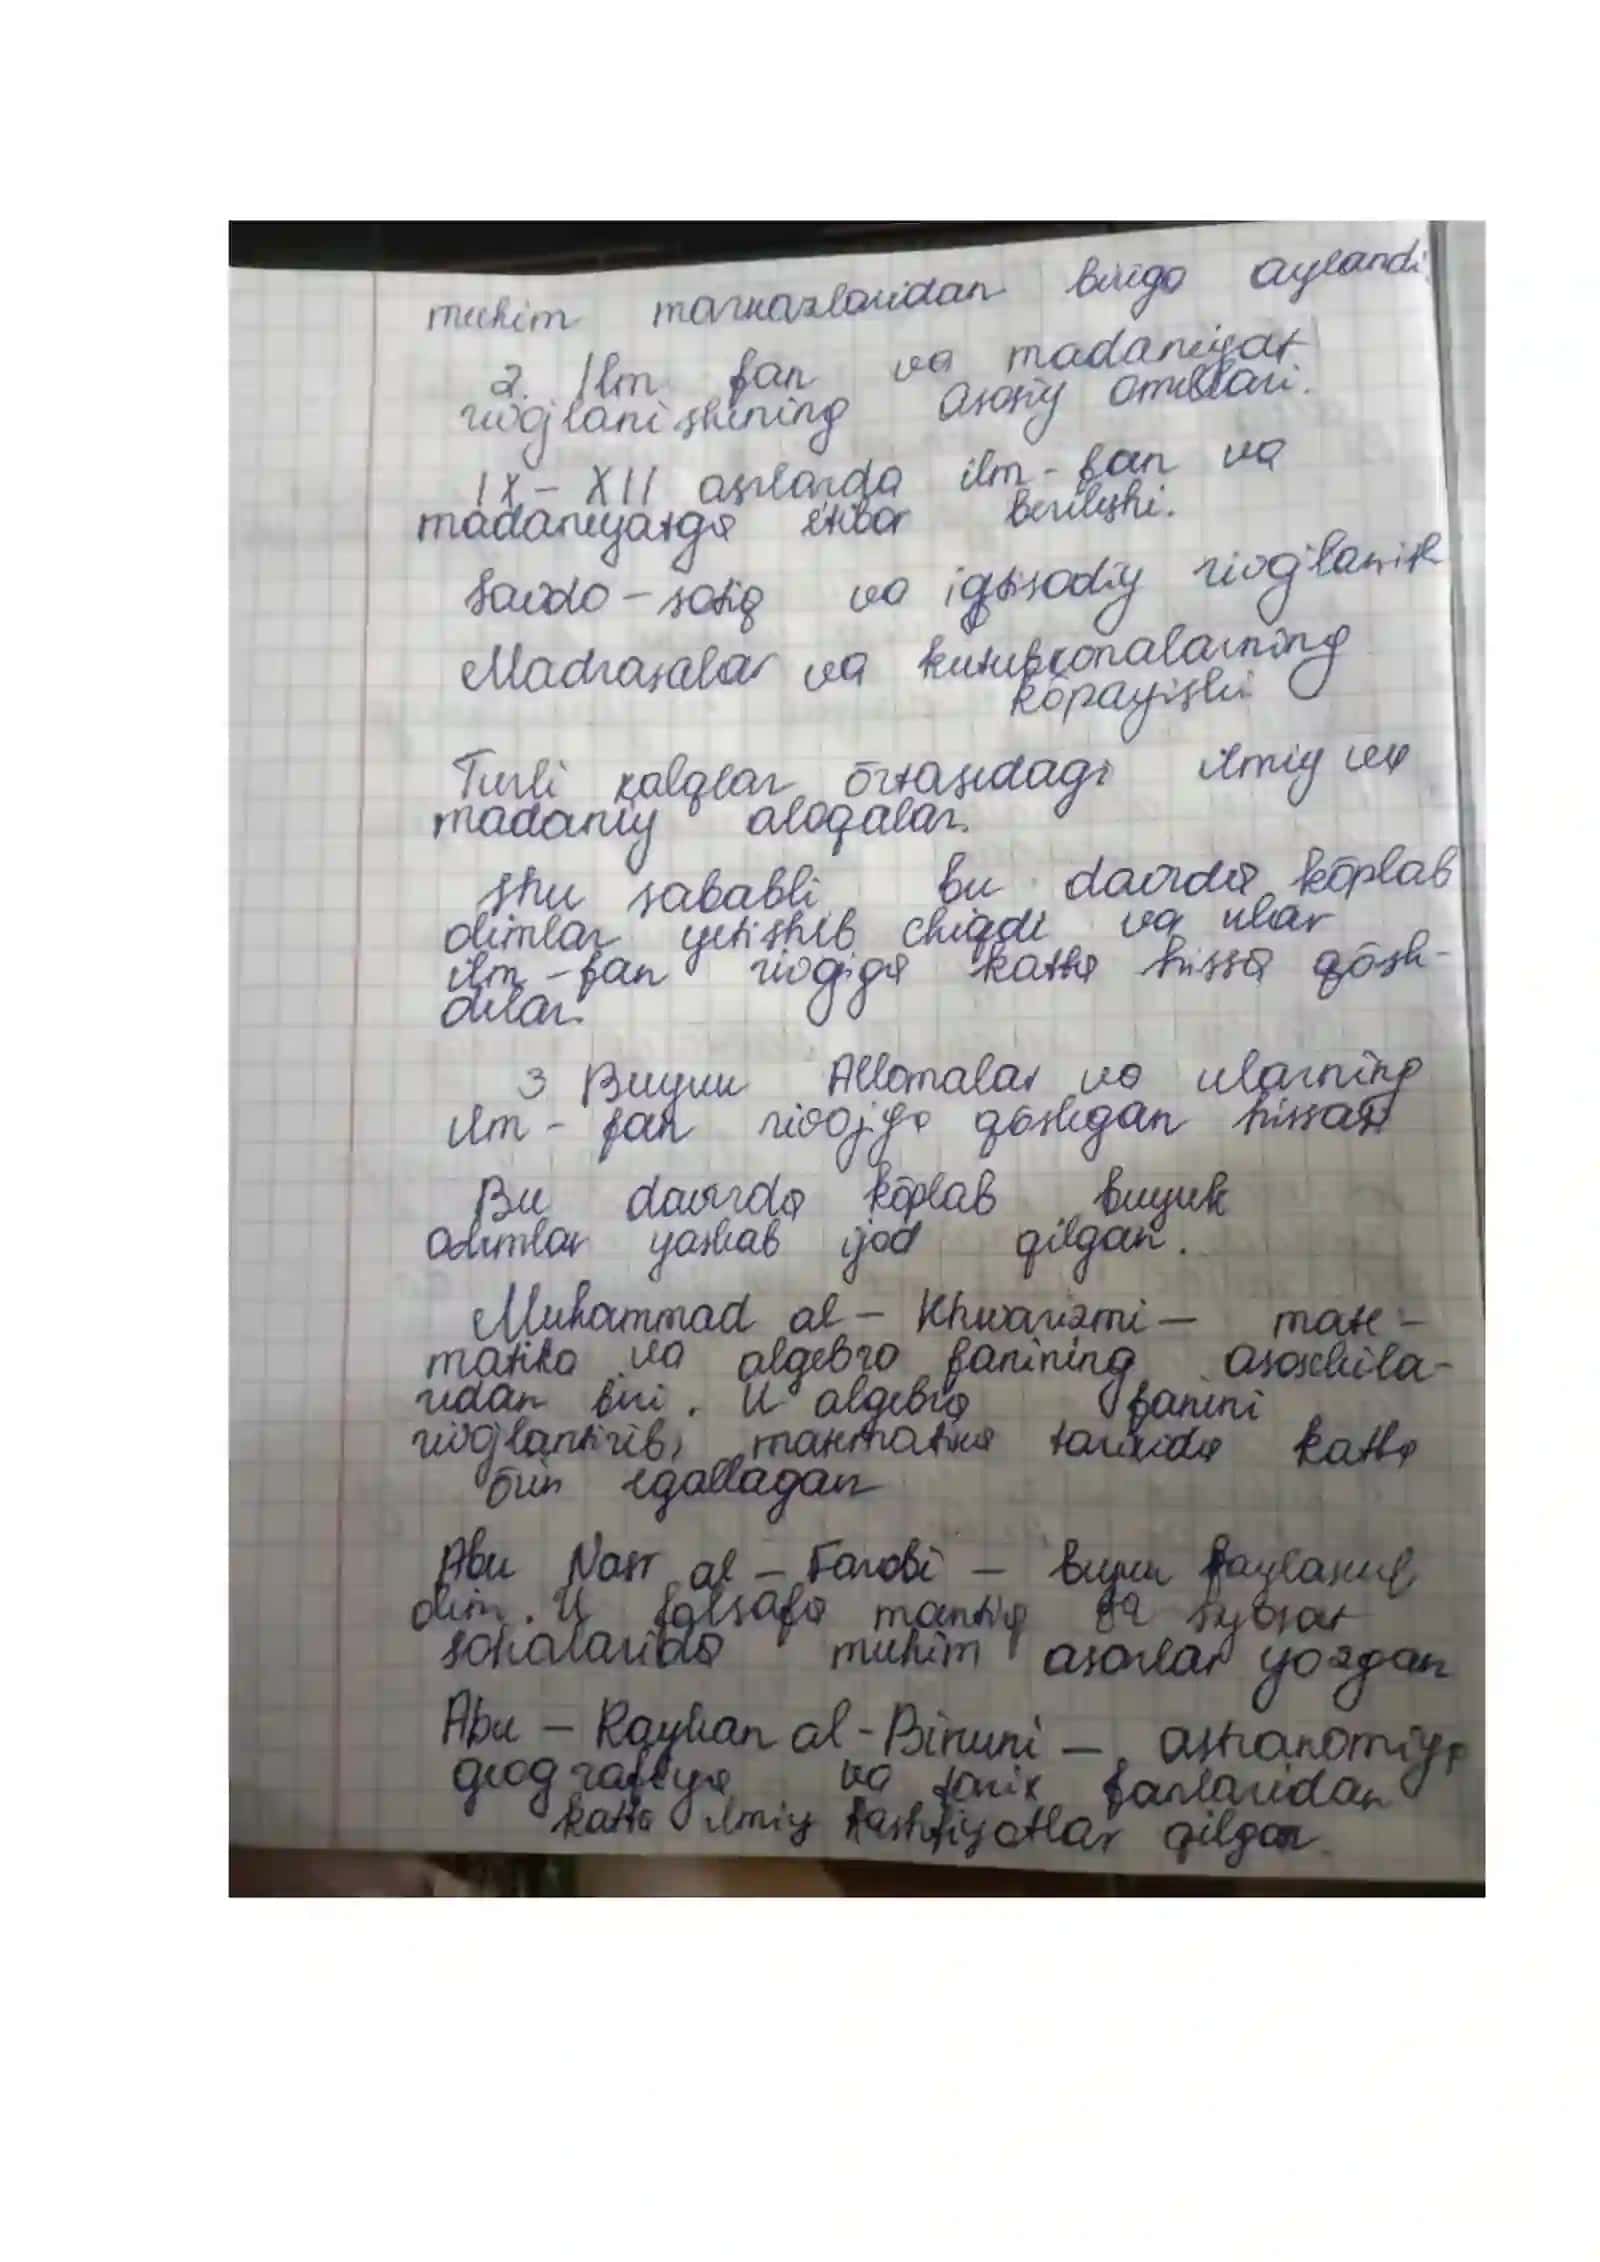 muhim markazlaridan biriga aylandi.
2. Ilm fan va madaniyat
rivojlanishining asosiy omillari.
IX – XII asrlarda ilm-fan va
madaniyatga e'tibor berilishi.
Savdo – sotiq va iqtisodiy rivojlanish
Madrasalar va kutubxonalarning
kōpayishi
Turli xalqlar ōrtasidagi ilmiy va
madaniy aloqalar.
Shu sababli bu davrda kōplab
olimlar yetishib chiqdi va ular
ilm-fan rivojiga katta hissa qōsh-
dilar.
3 Buyuu Allomalar va ularning
ilm-fan rivojga qōshgan hissasi
Bu davrda kōplab buyuk
odimlar yashab ijod qilgan.
Muhammad al – Khwarizmi – mate-
matika va algebra fanining asoschila-
ridan biri. U algebra fanini
rivojlantirib, matematika tarixida katta
ōrin egallagan
Abu Nasr al – Farobi – buyuu faylasuf,
olim. U falsafa mantiq va syosat
sohalarida muhim asarlar yozgan
Abu – Rayhan al-Biruni – astranomiya,
geografiya va tarix fanlaridan
katta ilmiy kashfiyotlar qilgan.